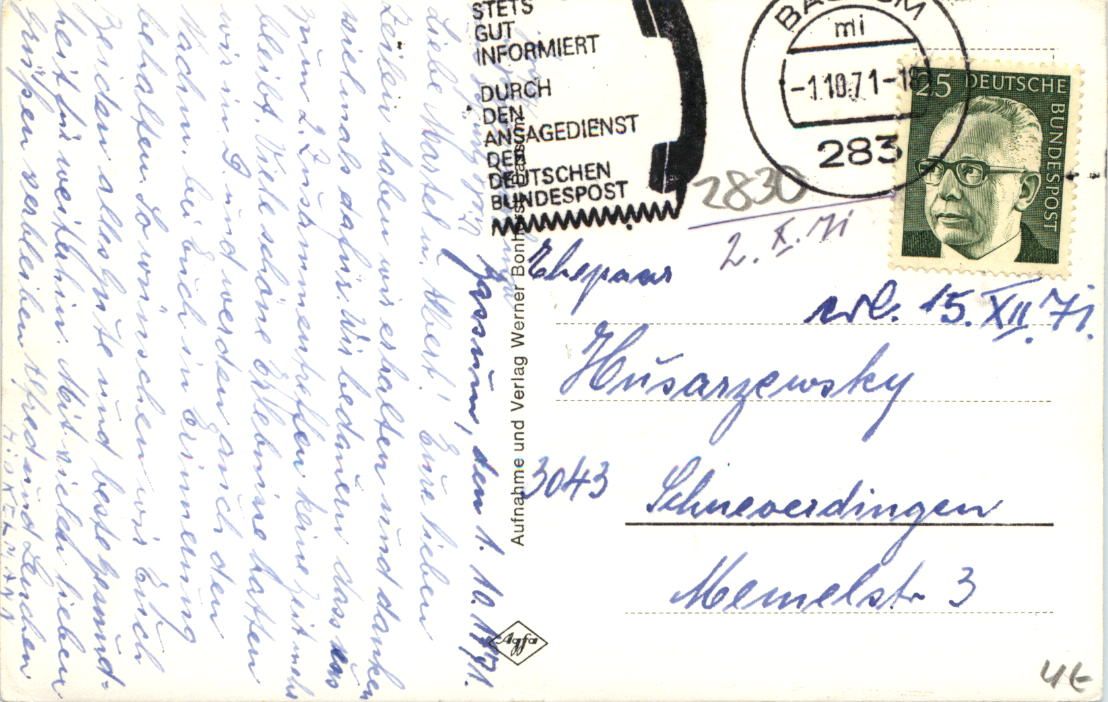 STETS
GUT
INFORMIERT
DURCH
DEN
ANSAGEDIENST
DER
DEUTSCHEN
BUNDESPOST
BASSUM
mi
-1.10.71-18
283
25 DEUTSCHE
BUNDESPOST
2830
2. X. 71
Ehepaar
erl. 15. XII. 71.
Husarzewsky
3043 Schneverdingen
Memelstr 3
4E
Aufnahme und Verlag Werner Bonhorst
Agfa
Bassum, den 1. 10. 1971.
Liebe Martel u. Albert! Eure lieben
Zeilen haben wir erhalten und danken
vielmals dafür. Wir bedauern dass uns
zum 2. Zusammentreffen keine Zeit mehr
bleibt. Viele schöne Erlebnisse hatten
wir in D und werden auch den
Nachm. bei Euch in Erinnerung
behalten. So wünschen wir Euch
beiden alles Gute und beste Gesund-
heit für weiterhin. Mit vielen lieben
Grüßen verbleiben Alfred und Lenchen